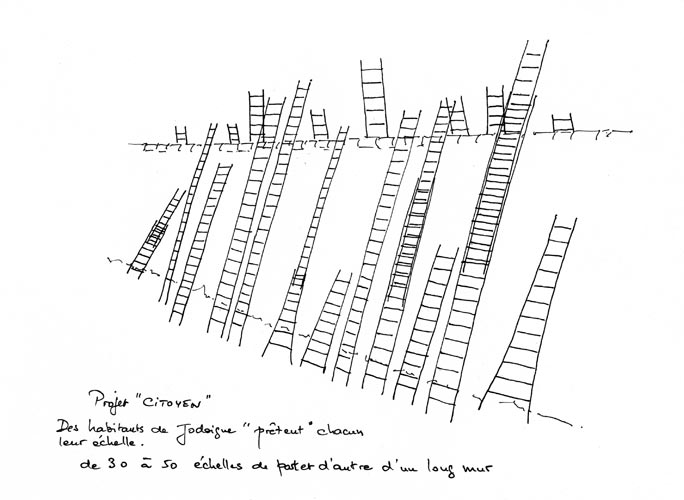 Projet "CITOYEN"
Des habitants de Jodoigne "prêtent" chacun
leur échelle.
de 30 à 50 échelles de part et d'autre d'un long mur